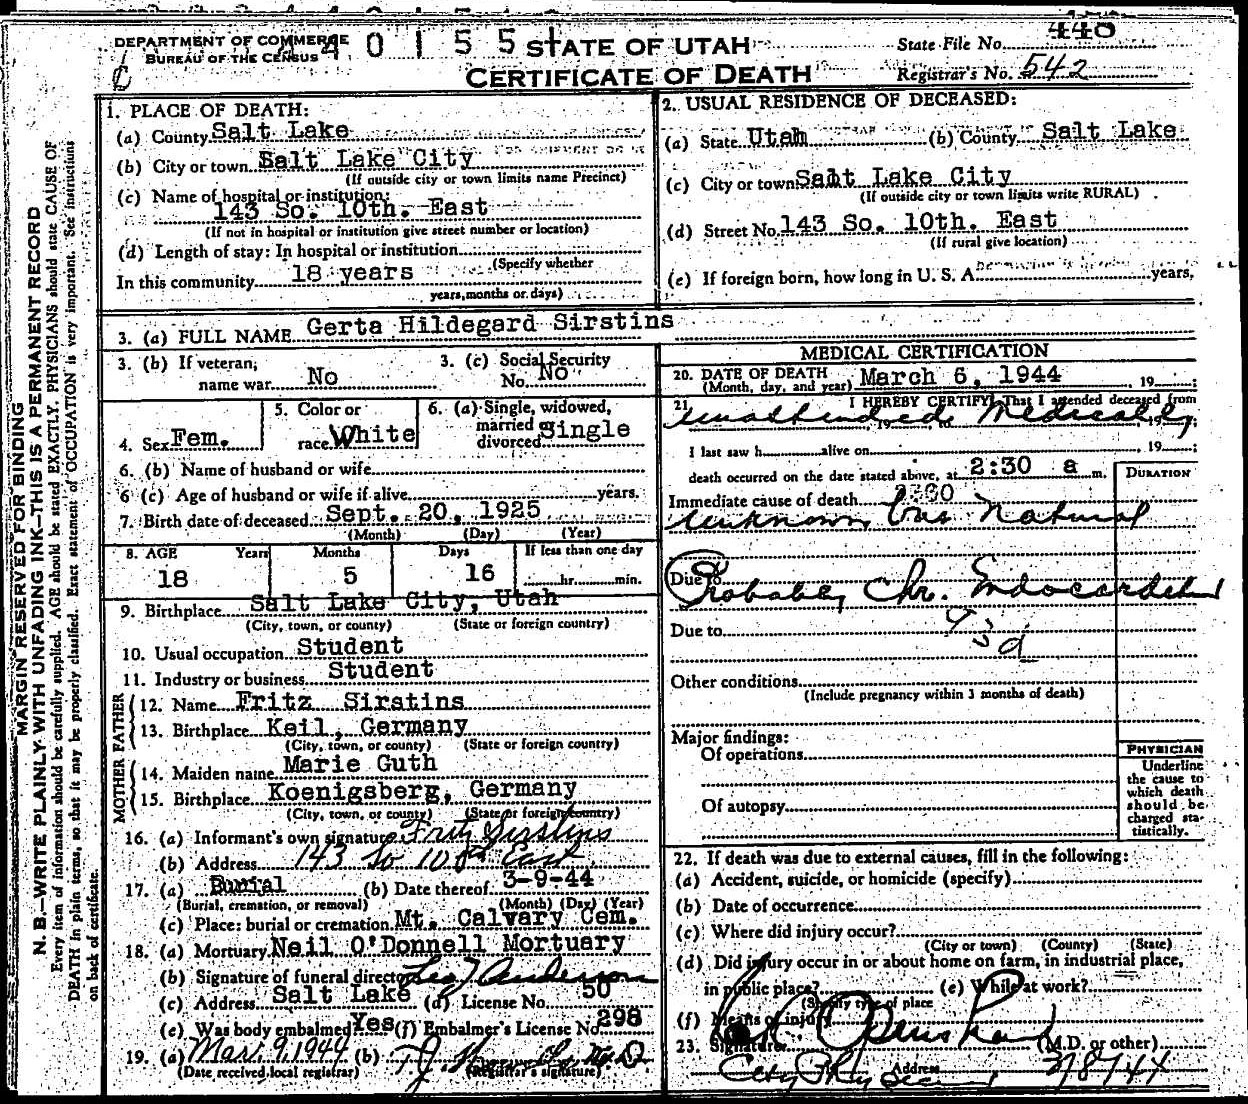 DEPARTMENT OF COMMERCE
BUREAU OF THE CENSUS
4 0 1 5 5
STATE OF UTAH
CERTIFICATE OF DEATH
State File No. 448
Registrar's No. 542
MARGIN RESERVED FOR BINDING
N. B.—WRITE PLAINLY WITH UNFADING INK—THIS IS A PERMANENT RECORD
Every item of information should be carefully supplied. AGE should be stated EXACTLY. PHYSICIANS should state CAUSE OF
DEATH in plain terms, so that it may be properly classified. Exact statement of OCCUPATION is very important. See instructions
on back of certificate.
1. PLACE OF DEATH:
(a) County Salt Lake
(b) City or town Salt Lake City
(If outside city or town limits name Precinct)
(c) Name of hospital or institution:
143 So. 10th. East
(If not in hospital or institution give street number or location)
(d) Length of stay: In hospital or institution
(Specify whether
In this community 18 years
years, months or days)
2. USUAL RESIDENCE OF DECEASED:
(a) State Utah (b) County Salt Lake
(c) City or town Salt Lake City
(If outside city or town limits write RURAL)
(d) Street No. 143 So. 10th. East
(If rural give location)
(e) If foreign born, how long in U. S. A. years.
3. (a) FULL NAME Gerta Hildegard Sirstins
3. (b) If veteran; name war No
3. (c) Social Security No. No
4. Sex Fem.
5. Color or race White
6. (a) Single, widowed, married or divorced Single
6. (b) Name of husband or wife
6 (c) Age of husband or wife if alive years.
7. Birth date of deceased Sept. 20, 1925
(Month) (Day) (Year)
8. AGE Years Months Days If less than one day
18 5 16 hr. min.
9. Birthplace Salt Lake City, Utah
(City, town, or county) (State or foreign country)
10. Usual occupation Student
11. Industry or business Student
FATHER
12. Name Fritz Sirstins
13. Birthplace Keil, Germany
(City, town, or county) (State or foreign country)
MOTHER
14. Maiden name Marie Guth
15. Birthplace Koenigsberg, Germany
(City, town, or county) (State or foreign country)
16. (a) Informant's own signature Fritz Sirstins
(b) Address 143 So 10th East
17. (a) Burial (b) Date thereof 3-9-44
(Burial, cremation, or removal) (Month) (Day) (Year)
(c) Place: burial or cremation Mt. Calvary Cem.
18. (a) Mortuary Neil O'Donnell Mortuary
(b) Signature of funeral director Leo J Anderson
(c) Address Salt Lake (d) License No. 50
(e) Was body embalmed Yes (f) Embalmer's License No. 298
19. (a) Mar. 9, 1944 (b)
(Date received local registrar) (Registrar's signature)
MEDICAL CERTIFICATION
20. DATE OF DEATH
(Month, day, and year) March 6, 1944, 19
21. I HEREBY CERTIFY, That I attended deceased from
unattended Medically
19 to 19
I last saw h alive on , 19
death occurred on the date stated above, at 2:30 a m.
DURATION
Immediate cause of death
Unknown but Natural
Due to
Probably Chr. Endocarditis
Due to 93d
Other conditions
(Include pregnancy within 3 months of death)
Major findings:
Of operations
Of autopsy
PHYSICIAN
Underline
the cause to
which death
should be
charged sta-
tistically.
22. If death was due to external causes, fill in the following:
(a) Accident, suicide, or homicide (specify)
(b) Date of occurrence
(c) Where did injury occur?
(City or town) (County) (State)
(d) Did injury occur in or about home on farm, in industrial place,
in public place? (e) While at work?
(Specify type of place
(f) Means of injury
23. Signature (M.D. or other)
City Phy Address 3/8/44